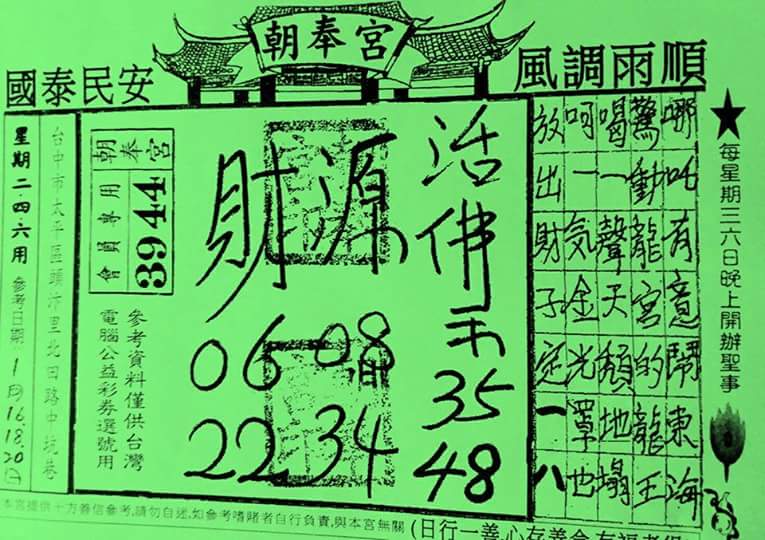 朝奉宮
國泰民安
風調雨順
★每星期三六日晚上開辦聖事
哪吒有意鬧東海
驚動龍宮的龍王
喝一聲天頹地塌
呵一氣金光罩地
放出財子定一八
活佛示
35
48
財源
06 08
22 34
朝奉宮
會員專用
3944
參考資料僅供台灣
電腦公益彩券選號用
台中市太平區頭汴里北田路中坑巷
星期二四六用 參考日期 1月16.18.20日
本宮提供十方善信參考,請勿自述,如參考嗜賭者自行負責,與本宮無關
(日行一善,心存善念,有福者得